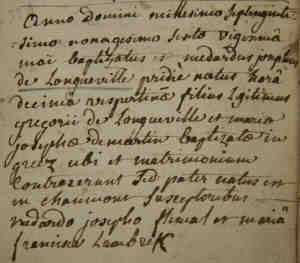 Anno domini millesimo septingente
simo nonagesimo sexto vigesima
maii baptizatus e. medardus josephus
de Longueville pridie natus hora
decima vespertina filius Legitimus
gregorii de Longueville et maria
josepha demartin baptizata in
grez ubi et matrimonium
Contraxerunt sed pater natus est
in chaumont susceptoribus
medardo josepho et maria
francisca Lambre